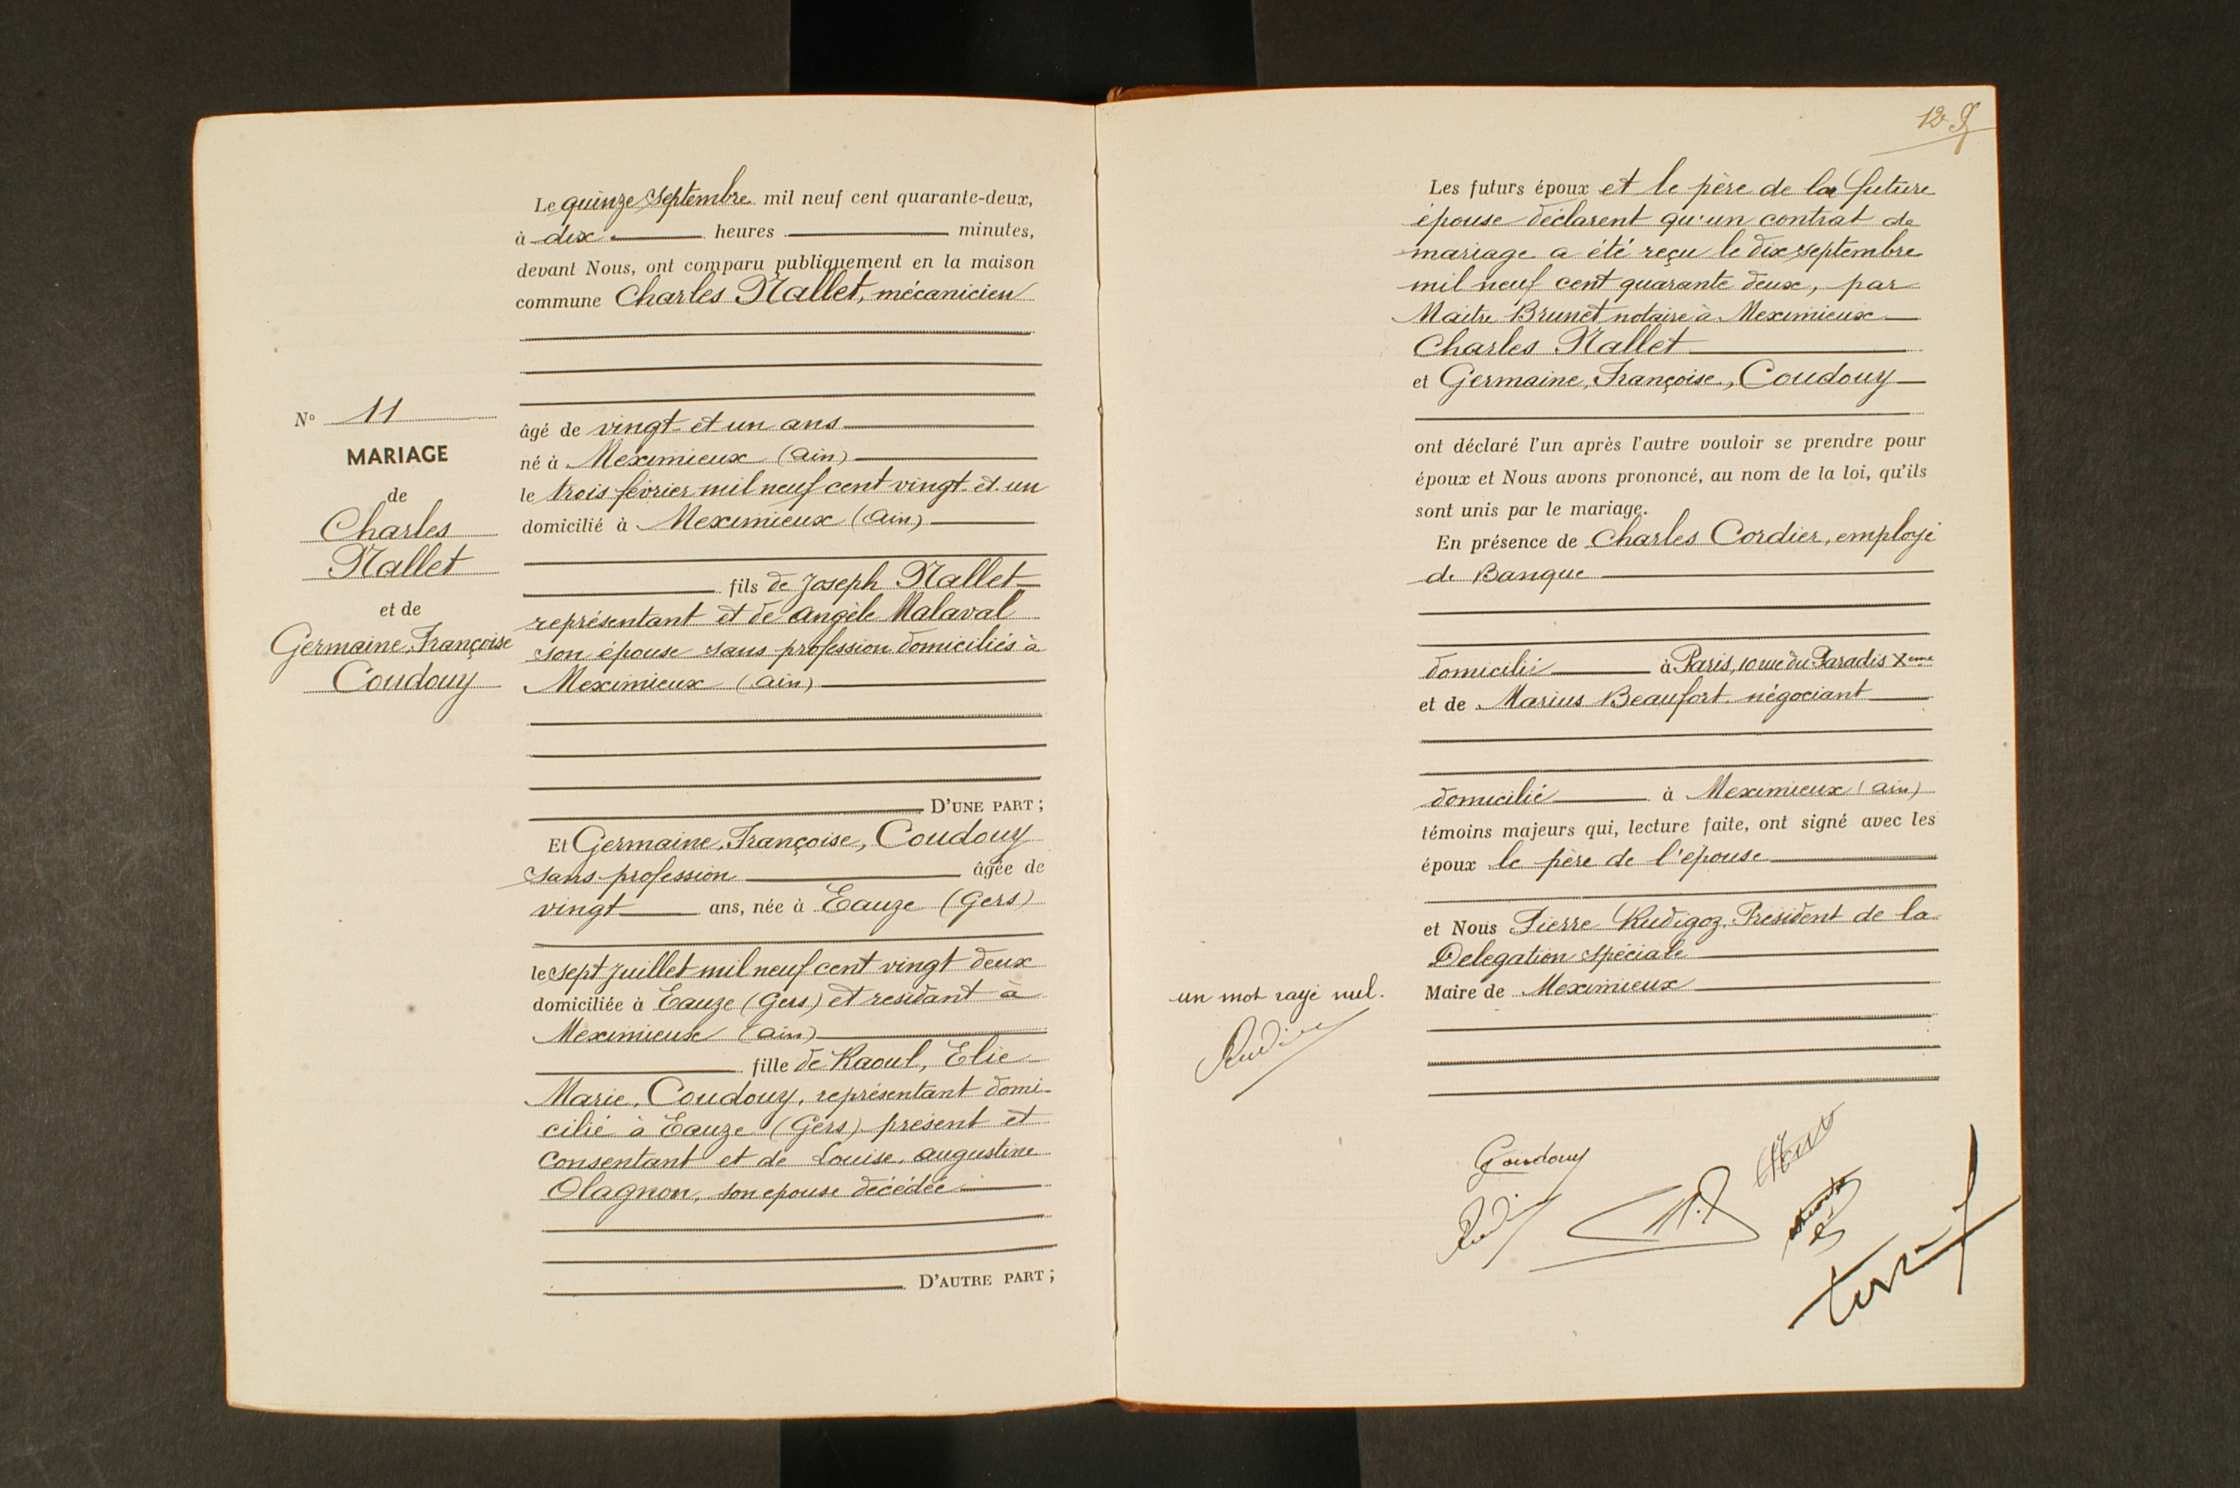 Le quinze Septembre mil neuf cent quarante-deux,
à dix heures minutes,
devant Nous, ont comparu publiquement en la maison
commune Charles Nallet, mécanicien
âgé de vingt-et un ans
né à Meximieux (Ain)
le trois février mil neuf cent vingt-et-un
domicilié à Meximieux (Ain)
fils de Joseph Nallet
représentant et de Angèle Malaval
son épouse sans profession domiciliés à
Meximieux (Ain)
D'UNE PART ;
Et Germaine, Françoise, Coudouy
Sans profession âgée de
vingt ans, née à Eauze (Gers)
le sept Juillet mil neuf cent vingt deux
domiciliée à Eauze (Gers) et residant à
Meximieux (Ain)
fille de Raoul, Elie
Marie, Coudouy, représentant domi-
cilié à Eauze (Gers) présent et
consentant et de Louise, Augustine
Olagnon, son epouse décédée
D'AUTRE PART ;
N° 11
MARIAGE
de
Charles
Nallet
et de
Germaine, Françoise
Coudouy
12
Les futurs époux et le père de la future
épouse déclarent qu'un contrat de
mariage a été reçu le dix septembre
mil neuf cent quarante deux, par
Maitre Brunet notaire à Meximieux
Charles Nallet
et Germaine, Françoise, Coudouy
ont déclaré l'un après l'autre vouloir se prendre pour
époux et Nous avons prononcé, au nom de la loi, qu'ils
sont unis par le mariage.
En présence de Charles Cordier, employé
de Banque
domicilié à Paris, 10 rue du Paradis Xeme
et de Marius Beaufort, négociant
domicilié à Meximieux (Ain)
témoins majeurs qui, lecture faite, ont signé avec les
époux le père de l'épouse
et Nous Pierre Rudigoz, Président de la
Delegation Spéciale
Maire de Meximieux
un mot rayé nul.
Coudouy